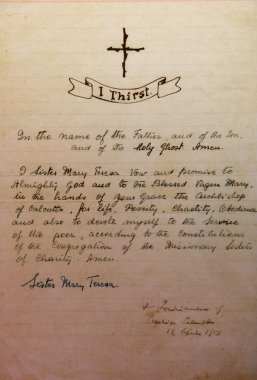 I Thirst.
In the name of the Father, and of the Son,
and of the Holy Ghost Amen.
I Sister Mary Teresa Vow and promise to
Almighty God and to the Blessed Virgin Mary,
in the hands of Your Grace the Archbishop
of Calcutta, for life, Poverty, Chastity, Obedience
and also to devote myself to the Service
of the poor, according to the Constitutions
of the Congregation of the Missionary Sisters
of Charity. Amen.
Sister Mary Teresa.
+ Ferdinand
12 April